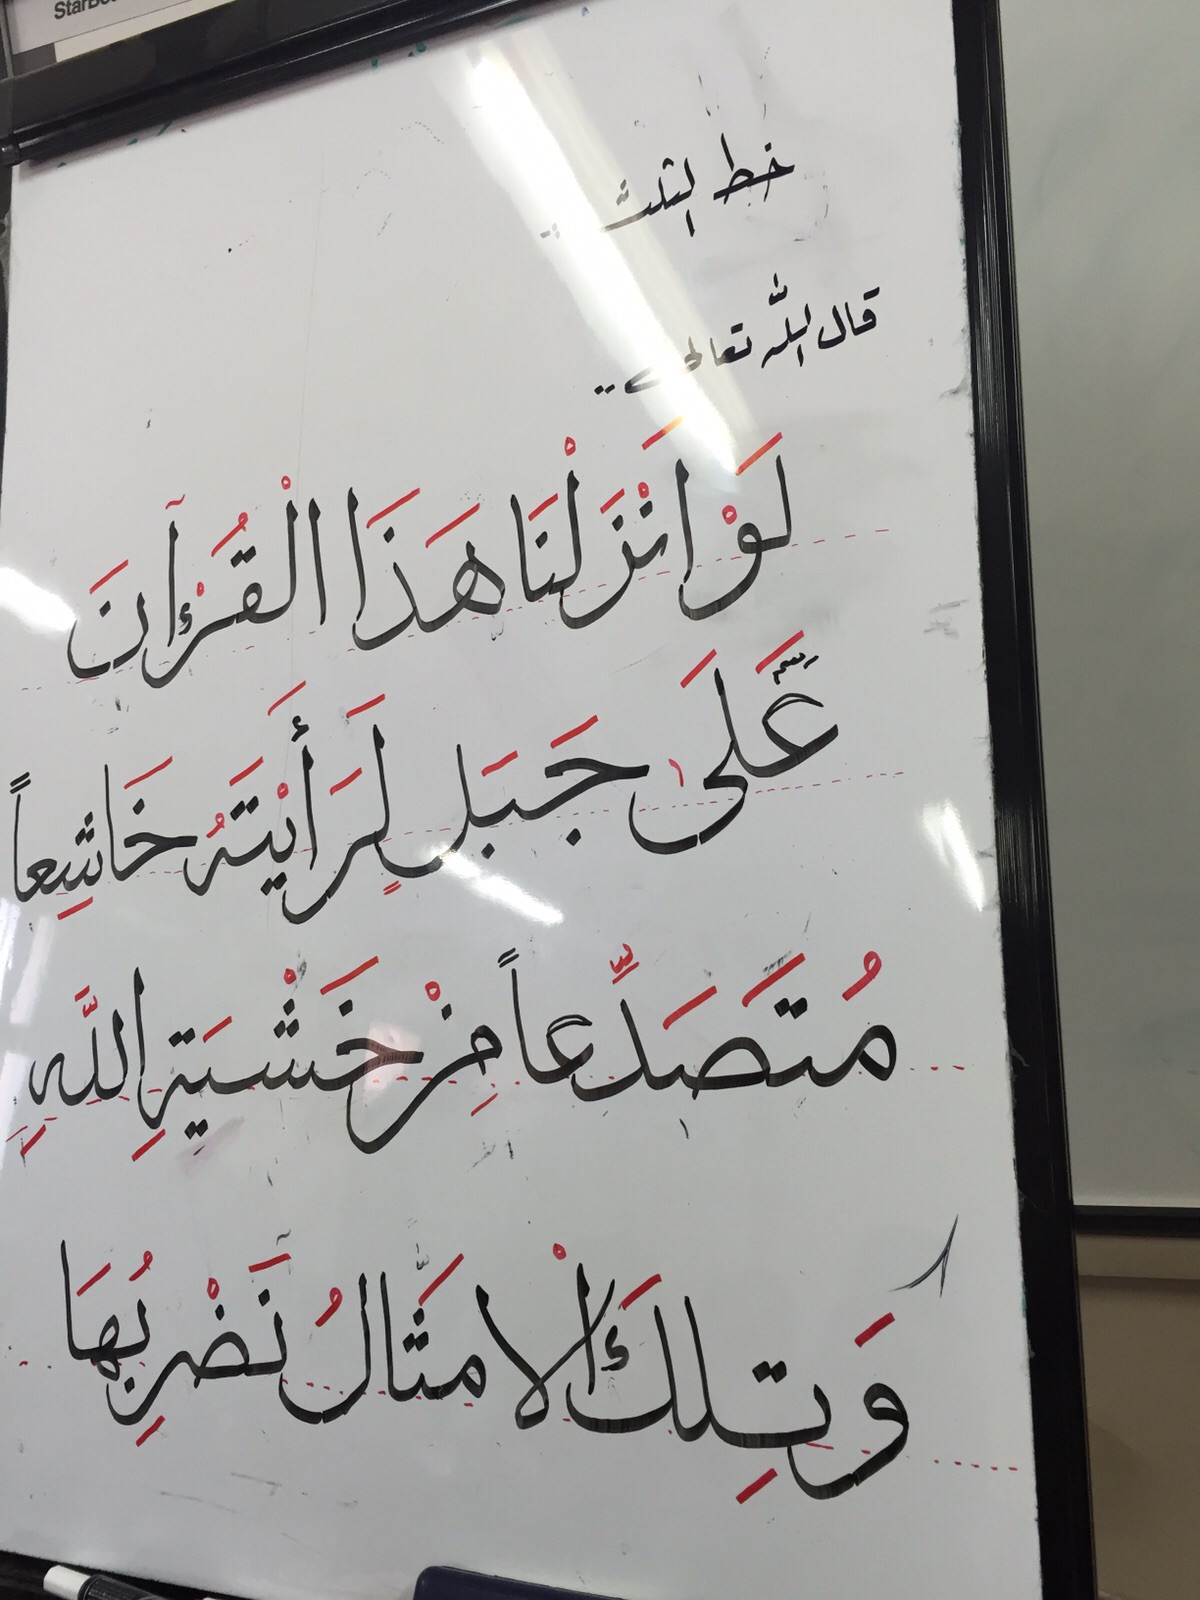 StarBo
خط الثلث ..
قال الله تعالى ..
لَوْ اَنْزَلْنَا هَذَا الْقُرْءَآنَ
عَّلَى جَبَلٍ لَرَأَيْتَهُ خَاشِعاً
مُتَصَدِّعاً مِنْ خَشْيَةِ اللَّهِ
وَتِلكَ الْامثَالُ نَضْرِبُهَا